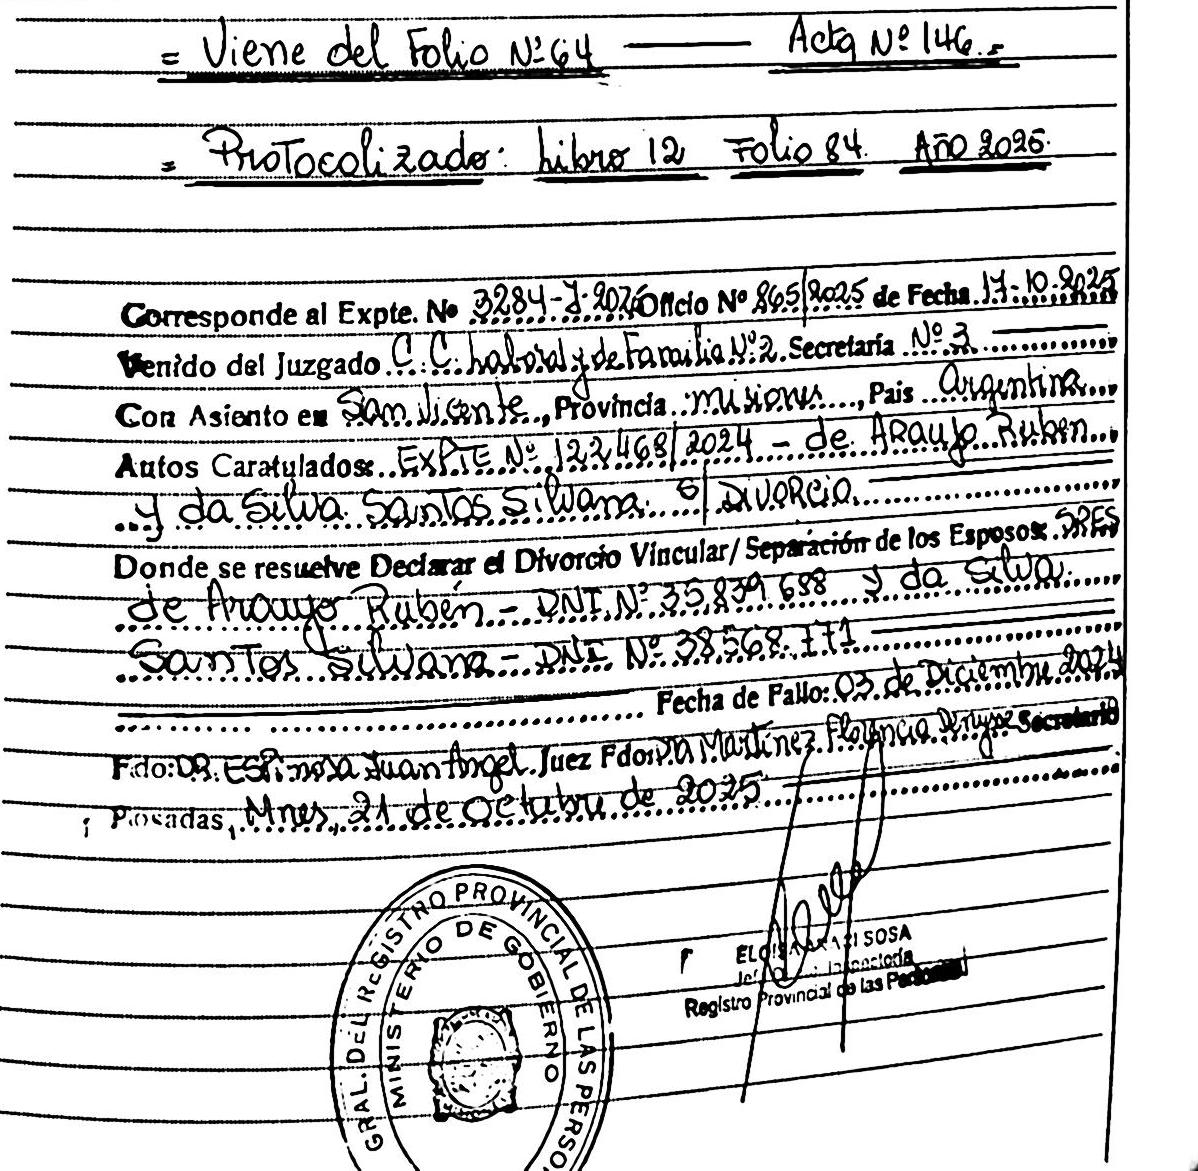 = Viene del Folio Nº 64 — Acta Nº 146.=
= Protocolizado: Libro 12 Folio 84. Año 2025.
Corresponde al Expte. Nº 3284-J-2025 Oficio Nº 865/2025 de Fecha 17-10-2025
Venido del Juzgado C.C. Laboral y de Familia Nº 2. Secretaría Nº 3
Con Asiento en San Vicente, Provincia Misiones, País Argentina
Autos Caratulados: EXPTE Nº 122468/2024 - de ARaujo Ruben
y da Silva Santos Silvana S/ DIVORCIO.
Donde se resuelve Declarar el Divorcio Vincular/Separación de los Esposos: SRES
de Araujo Rubén - DNI. Nº 35.839.688 y da Silva
Santos Silvana - DNI Nº 38.568.771
Fecha de Fallo: 03 de Diciembre 2024
Fdo: DR. ESPinosa Juan Angel. Juez Fdo: DRA Martínez Florencia Secretario
Posadas, Mnes, 21 de Octubre de 2025
GRAL. DEL REGISTRO PROVINCIAL DE LAS PERSO
MINISTERIO DE GOBIERNO
SOSA
Registro Provincial de las Personas